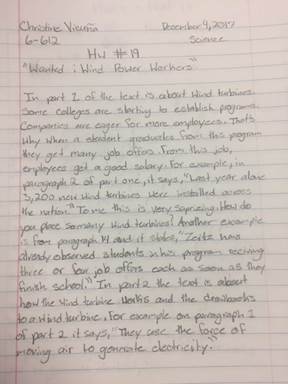 Christine Vicuña December 4, 2017
6-612 Science
HW #19
"Wanted: Wind Power Workers"
In part 1 of the text is about wind turbines.
Some colleges are starting to establish programs.
Companies are eager for more employees. That's
why when a student graduates from this program
they get many job offers. From this job,
employees get a good salary. For example, in
paragraph 2 of part one, it says, "Last year alone
3,200 new wind turbines were installed across
the nation." To me this is very suprising. How do
you place so many wind turbines? Another example
is from paragraph 14 and it states, "Zeitz has
already observed students in his program reciving
three or four job offers each as soon as they
finish school." In part 2 the text is about
how the wind turbine works and the drawbacks
to a wind turbine. For example on paragraph 1
of part 2 it says, "They use the force of
moving air to generate electricity."